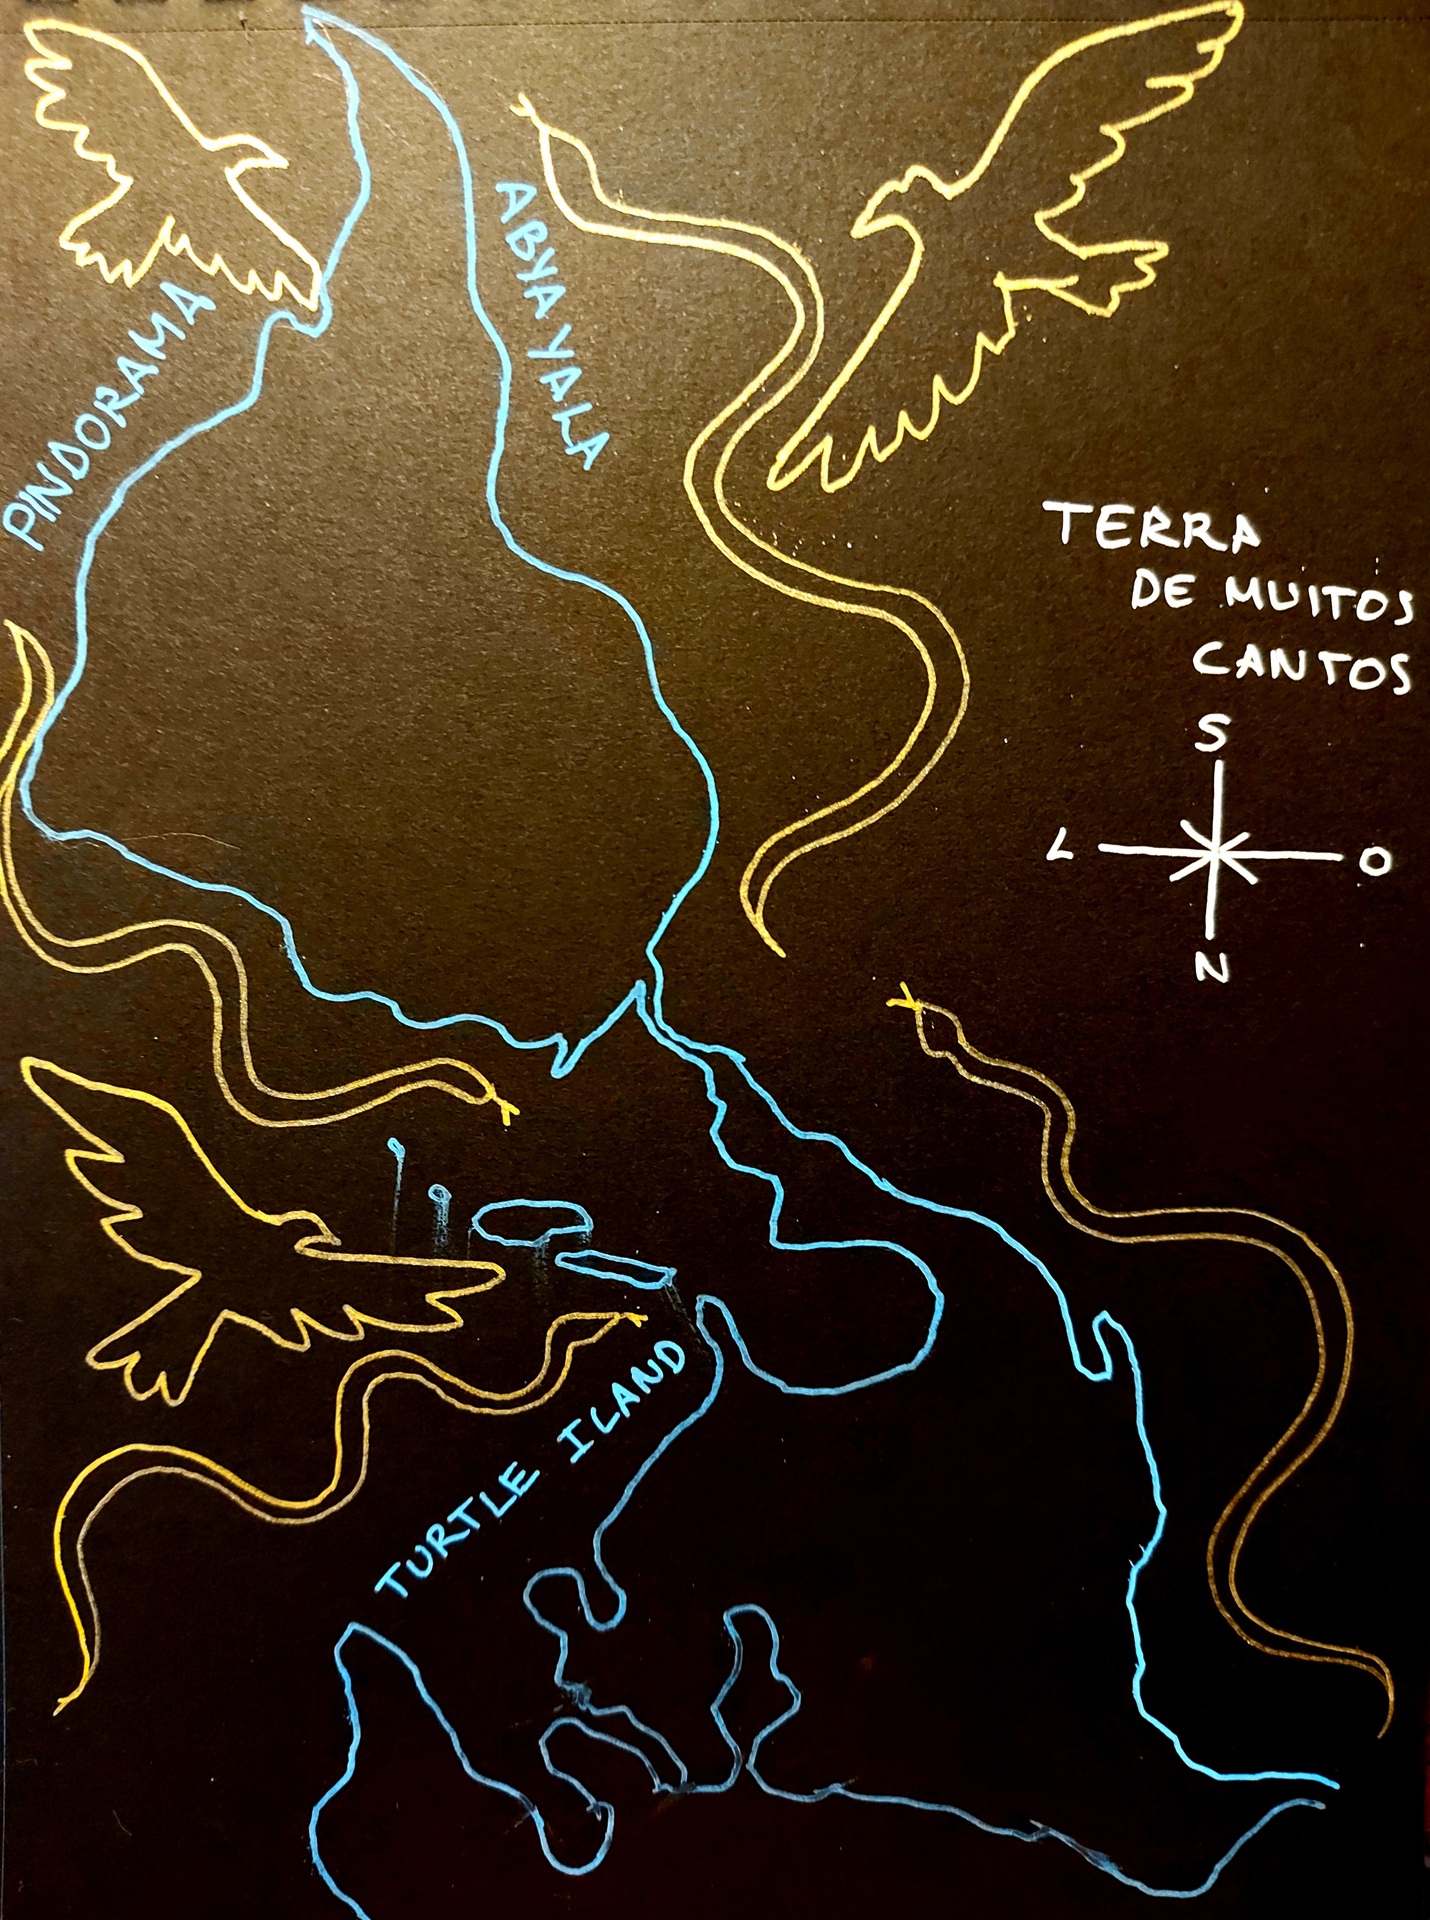 ABYA YALA
PINDORAMA
TERRA
DE MUITOS
CANTOS
S
L O
N
TURTLE ILAND